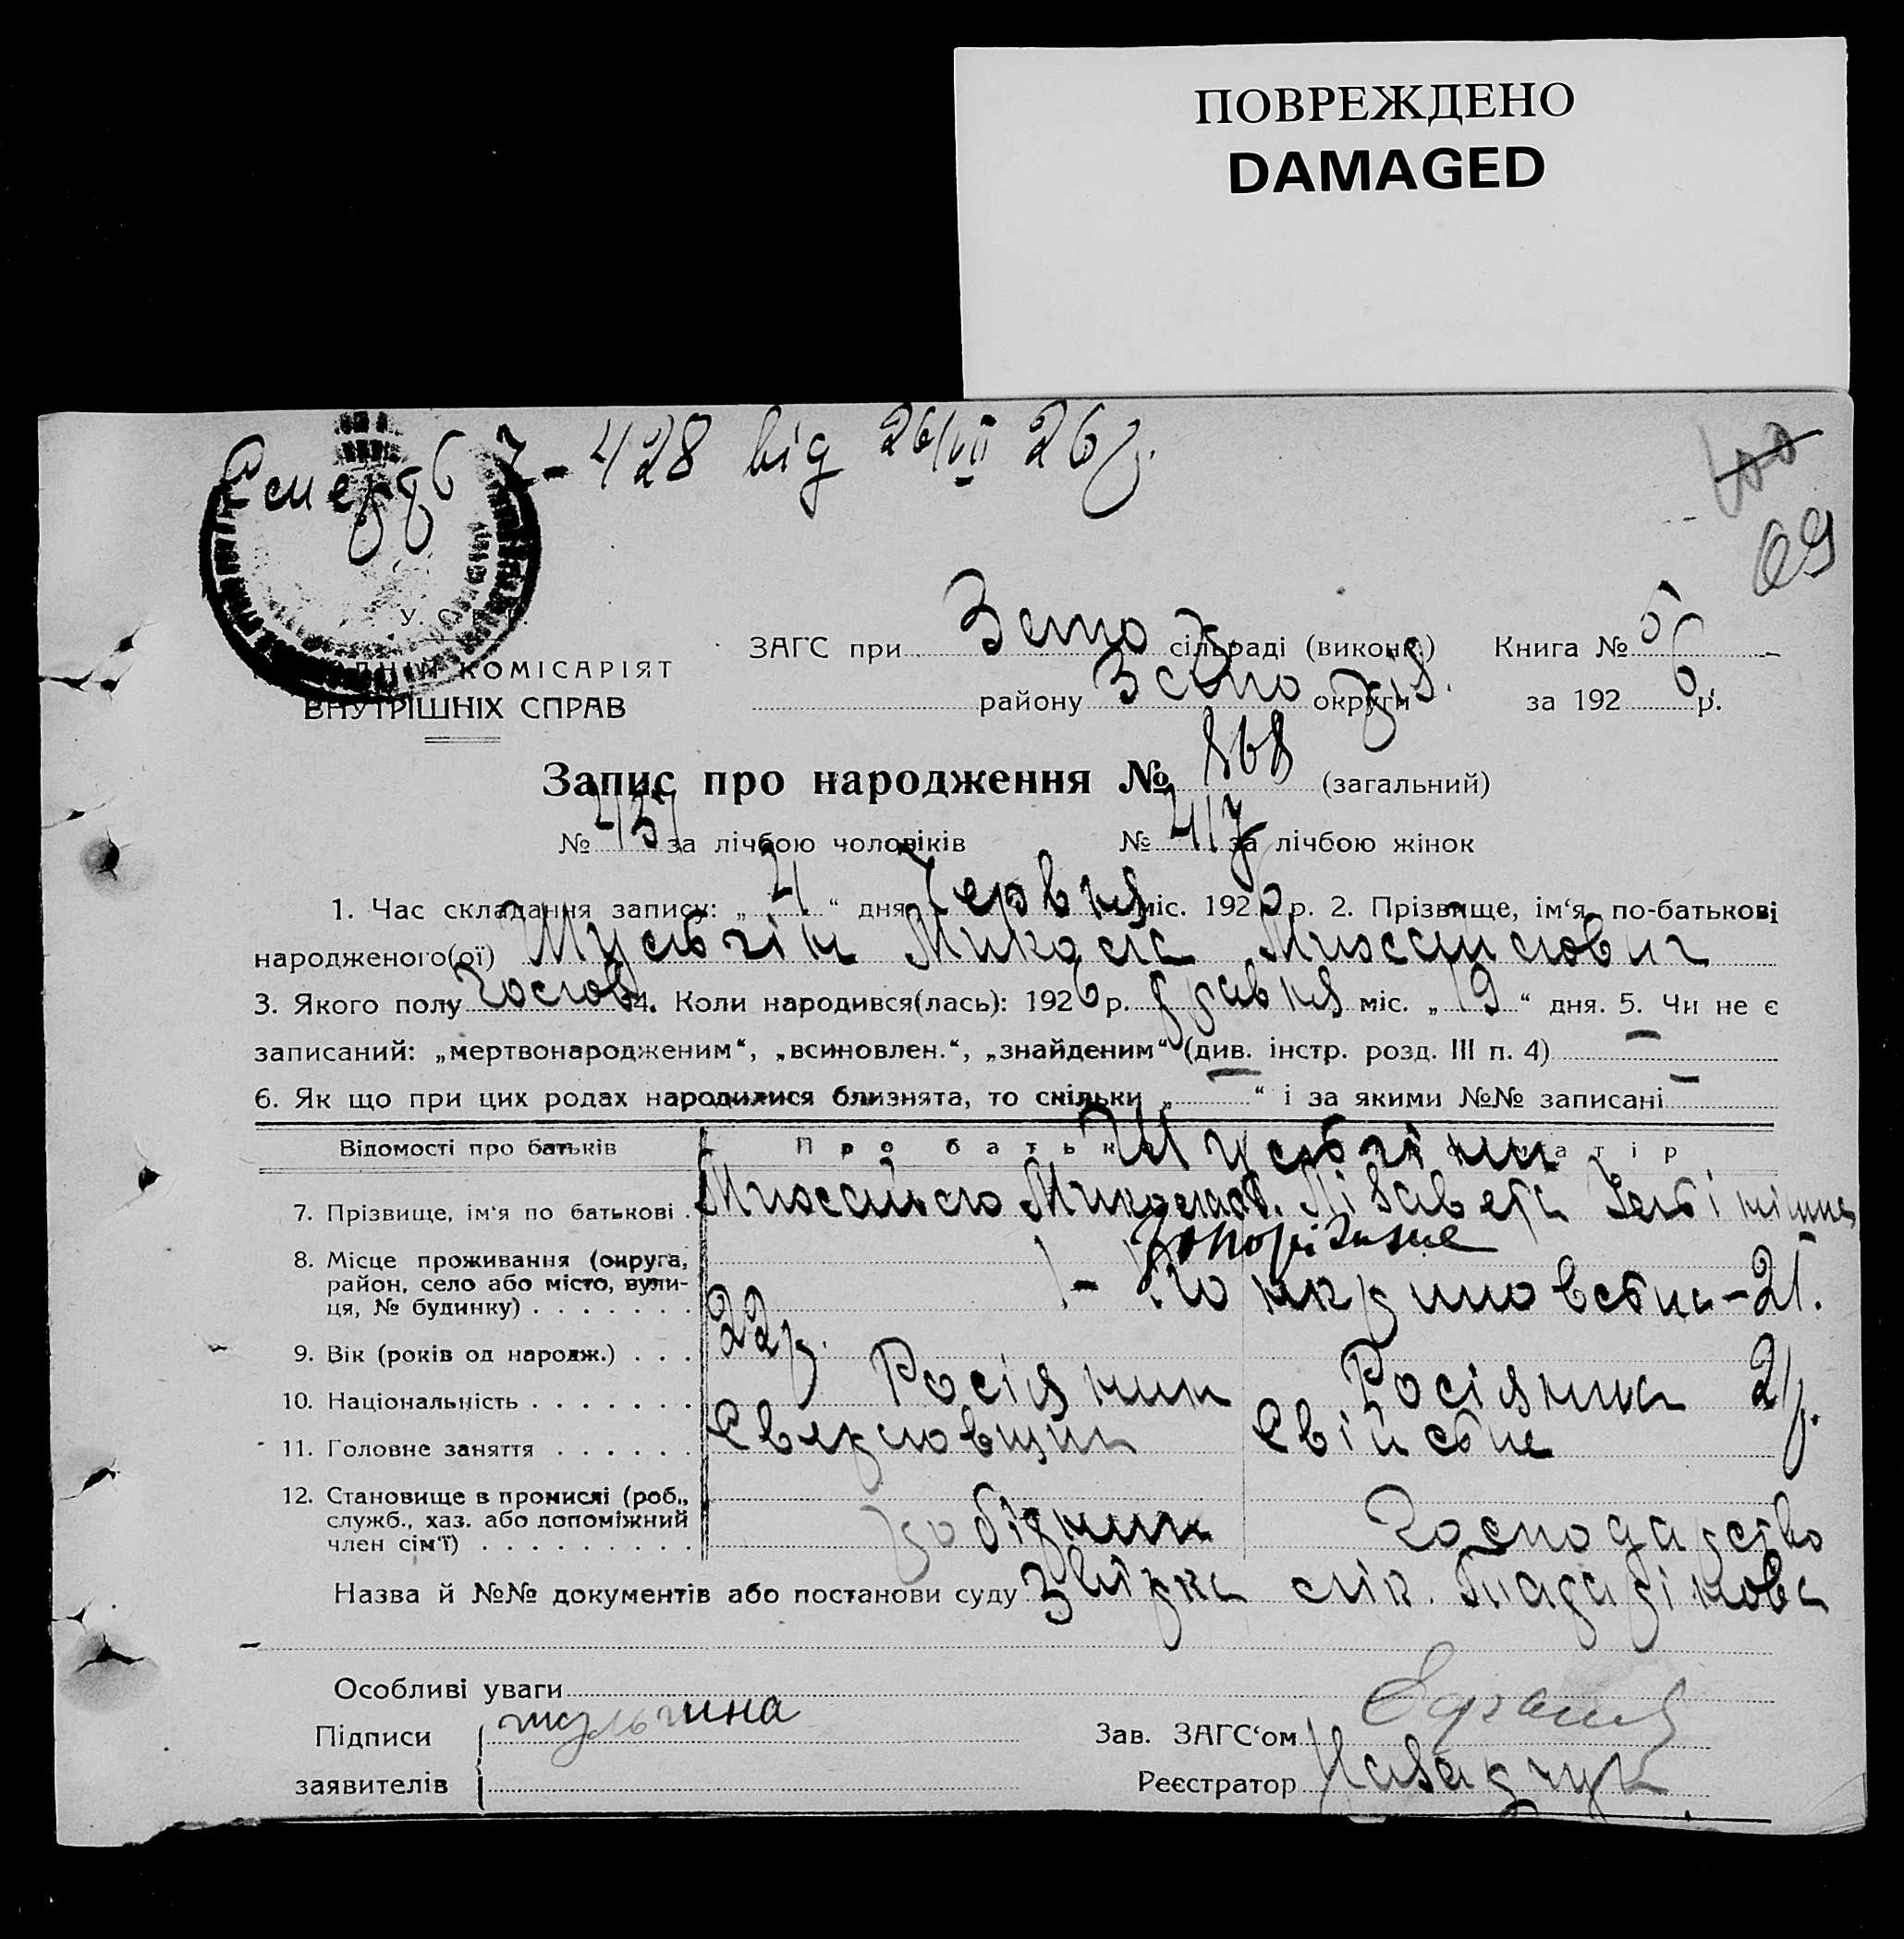 ПОВРЕЖДЕНО
DAMAGED
428 від 26/VII 26 р.
69
У.
КОМІСАРІЯТ
ВНУТРІШНІХ СПРАВ
ЗАГС при сільраді (виконк.) Книга №
району округи за 1926 р.
Запис про народження № 868 (загальний)
№ 451 за лічбою чоловіків № 417 за лічбою жінок
1. Час складання запису: „ 4 “ дня Червня міс. 1926 р. 2. Прізвище, ім‘я, по-батькові
народженого(ої) Шульгін Микола Михайлович
3. Якого полу чолов 4. Коли народився(лась): 1926 р. травня міс. „ 19 “ дня. 5. Чи не є
записаний: „мертвонародженим“, „всиновлен.“, „знайденим“ (див. інстр. розд. III п. 4) —
6. Як що при цих родах народилися близнята, то скільки „ — “ і за якими №№ записані —
Відомості про батьків Про батька матір
Шульгіни
7. Прізвище, ім‘я по батькові Михайло Микола Лізавета
8. Місце проживання (округа, район, село або місто, вулиця, № будинку) Запоріжжя
21.
9. Вік (років од народж.) 22 р. 21 р.
10. Національність Росіянин Росіянка
11. Головне заняття Свійстне
12. Становище в промислі (роб., служб., хаз. або допоміжний член сім‘ї) робітник Господарство
Назва й №№ документів або постанови суду Звірка лік.
Особливі уваги
Підписи Шульгина Зав. ЗАГС‘ом
заявителів Реєстратор